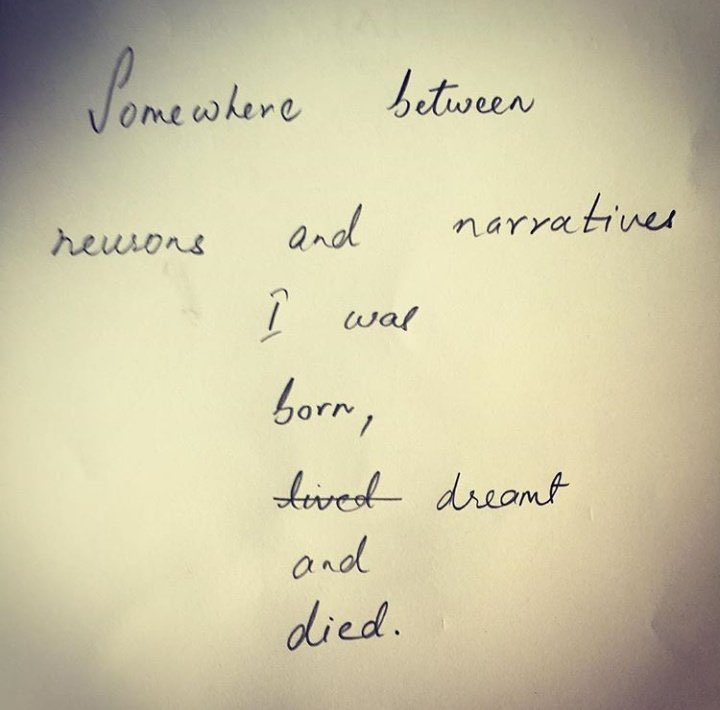 Somewhere between
neurons and narratives
I was
born,
lived dreamt
and
died.